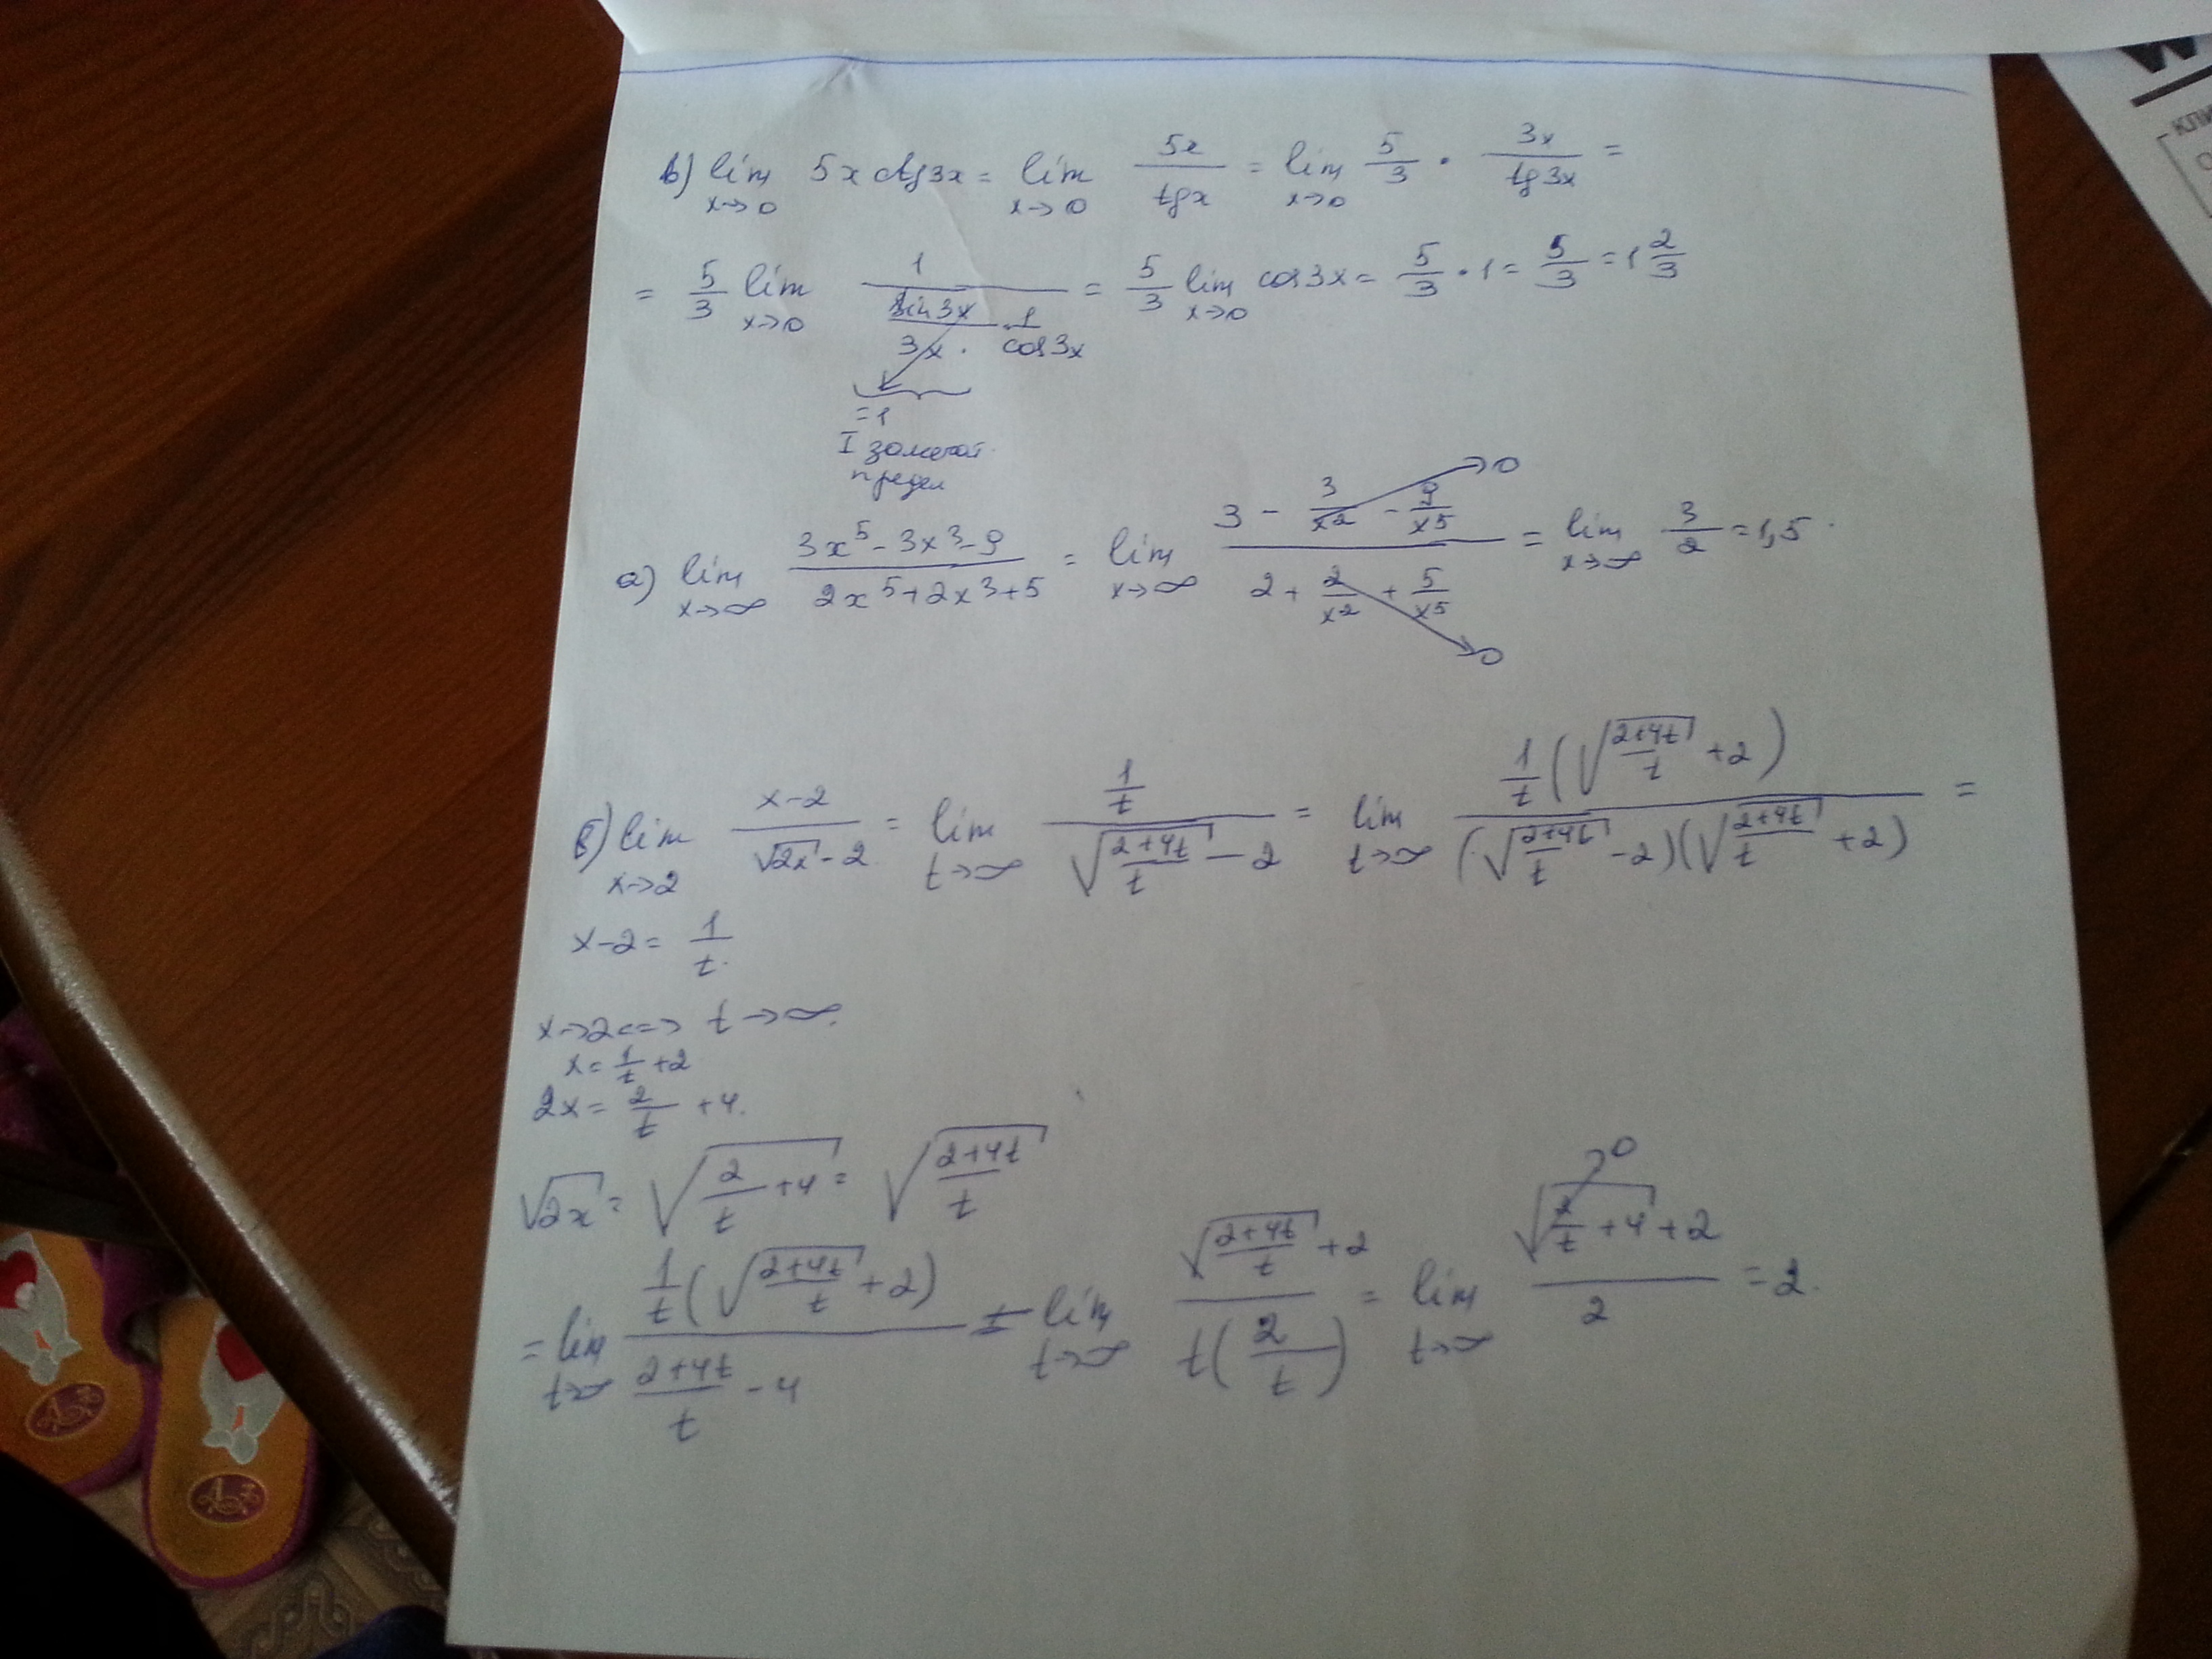 в) lim x→0 5x ctg3x = lim x→0 5x/tgx = lim x→0 5/3 · 3x/tg3x =
= 5/3 lim x→0 1/(sin3x/3x · 1/cos3x) = 5/3 lim x→0 cos3x = 5/3 · 1 = 5/3 = 1 2/3
=1
I замечат.
предел
а) lim x→∞ (3x^5 - 3x^3 - 9)/(2x^5 + 2x^3 + 5) = lim x→∞ (3 - 3/x^2 - 9/x^5)/(2 + 2/x^2 + 5/x^5) = lim x→∞ 3/2 = 1,5
→0
→0
б) lim x→2 (x-2)/(√(2x) - 2) = lim t→∞ (1/t)/(√((2+4t)/t) - 2) = lim t→∞ (1/t(√((2+4t)/t) + 2))/((√((2+4t)/t) - 2)(√((2+4t)/t) + 2)) =
x-2 = 1/t.
x→2 <=> t→∞.
x = 1/t + 2
2x = 2/t + 4.
√(2x) = √(2/t + 4) = √((2+4t)/t)
= lim t→∞ (1/t(√((2+4t)/t) + 2))/((2+4t)/t - 4) = lim t→∞ (√((2+4t)/t) + 2)/(t(2/t)) = lim t→∞ (√(2/t + 4) + 2)/2 = 2.
→0
W
КЛИ